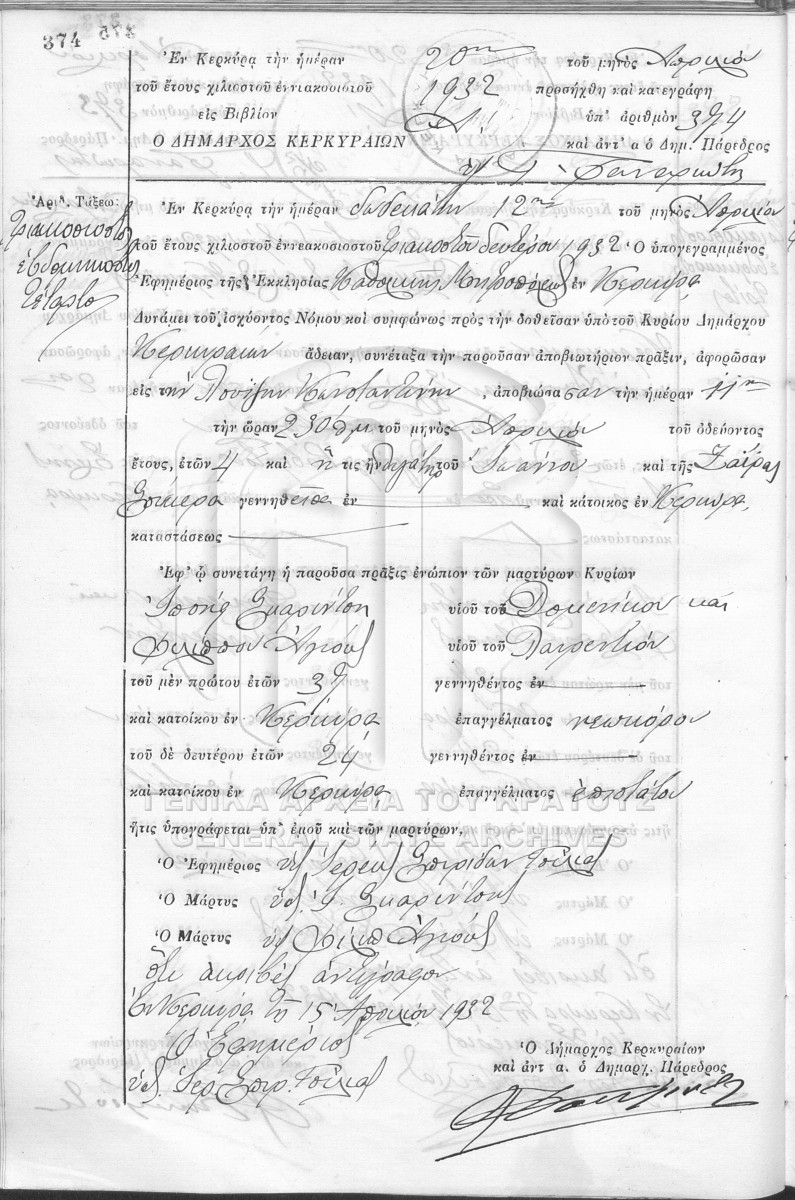 374
Ἐν Κερκύρᾳ τὴν ἡμέραν 20ην τοῦ μηνὸς Ἀπριλίου
τοῦ ἔτους χιλιοστοῦ ἐννεακοσιοστοῦ 1932 προσήχθη καὶ κατεγράφη
εἰς Βιβλίον Α! ὑπ' ἀριθμὸν 374
Ο ΔΗΜΑΡΧΟΣ ΚΕΡΚΥΡΑΙΩΝ καὶ ἀντ' α ὁ Δημ. Πάρεδρος
Ἀριθ. Τάξεως:
Τριακοσιοστὸς
ἑβδομηκοστὸς
τέταρτος
Ἐν Κερκύρᾳ τὴν ἡμέραν δωδεκάτην 12ην τοῦ μηνὸς Ἀπριλίου
τοῦ ἔτους χιλιοστοῦ ἐννεακοσιοστοῦ τριακοστοῦ δευτέρου 1932 Ὁ ὑπογεγραμμένος
Ἐφημέριος τῆς Ἐκκλησίας Καθολικῆς Μητροπόλεως ἐν Κερκύρᾳ
Δυνάμει τοῦ ἰσχύοντος Νόμου καὶ συμφώνως πρὸς τὴν δοθεῖσαν ὑπὸ τοῦ Κυρίου Δημάρχου
Κερκυραίων ἄδειαν, συνέταξα τὴν παροῦσαν ἀποβιωτήριον πρᾶξιν, ἀφορῶσαν
εἰς τὴν Λουίζην Κωνσταντίνην, ἀποβιώσασαν τὴν ἡμέραν 11ην
τὴν ὥραν 2 30' π.μ. τοῦ μηνὸς Ἀπριλίου τοῦ ὁδεύοντος
ἔτους, ἐτῶν 4 καὶ ἥτις ἦν θυγάτηρ τοῦ Ἰωάννου καὶ τῆς Ζαΐρας
γεννηθεῖσα ἐν καὶ κάτοικος ἐν Κερκύρᾳ,
καταστάσεως
Ἐφ' ᾧ συνετάγη ἡ παροῦσα πρᾶξις ἐνώπιον τῶν μαρτύρων Κυρίων
Ἰωσὴφ Σκαρπέτση υἱοῦ τοῦ Δομενίκου καὶ
Φίλιππον Ἀγιοὺς υἱοῦ τοῦ Λαυρεντίου
τοῦ μὲν πρώτου ἐτῶν 37 γεννηθέντος ἐν
καὶ κατοίκου ἐν Κερκύρᾳ ἐπαγγέλματος νεωκόρου
τοῦ δὲ δευτέρου ἐτῶν 24 γεννηθέντος ἐν
καὶ κατοίκου ἐν Κερκύρᾳ ἐπαγγέλματος ἐπιστάτου
ΓΕΝΙΚΑ ΑΡΧΕΙΑ ΤΟΥ ΚΡΑΤΟΥΣ
ἥτις ὑπογράφεται ὑπ' ἐμοῦ καὶ τῶν μαρτύρων,
GENERAL STATE ARCHIVES
Ὁ Ἐφημέριος ὑπ. Ἱερεὺς Σπυρίδων
Ὁ Μάρτυς ὑπ. Ἰ.
Ὁ Μάρτυς ὑπ. Φίλιπ Ἀγιοὺς
ὅτι ἀκριβὲς ἀντίγραφον
Ἐν Κερκύρᾳ τῇ 15 Ἀπριλίου 1932
Ὁ Ἐφημέριος
ὑπ. Ἱερ. Σπυρ.
Ὁ Δήμαρχος Κερκυραίων
καὶ ἀντ α. ὁ Δημαρχ. Πάρεδρος